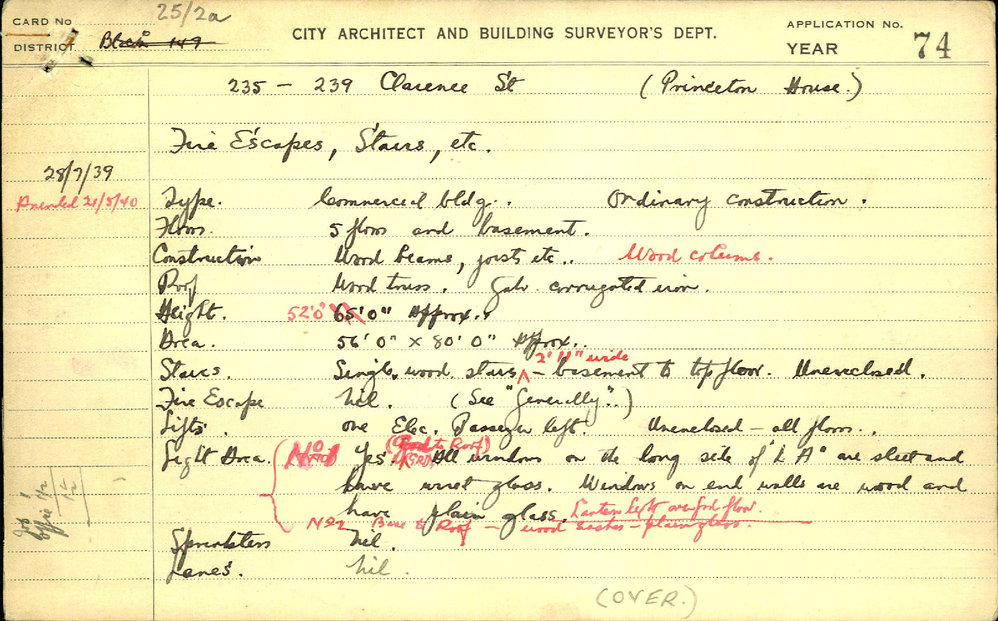 25/2a
CARD No
CITY ARCHITECT AND BUILDING SURVEYOR'S DEPT.
APPLICATION No.
DISTRICT Block 149
YEAR 74
235 – 239 Clarence St (Princeton House.)
Fire Escapes, Stairs, etc.
28/7/39
21/5/40
Type. Commercial bldg. Ordinary construction.
Floors. 5 floors and basement.
Construction Wood beams, joists etc.. Wood columns.
Roof Wood truss. Galv. corrugated iron.
Height. 52'0" 65'0" Approx.
Area. 56'0" x 80'0" Approx.
2'11" wide
Stairs. Single wood stairs – basement to top floor. Unenclosed.
Fire Escape Nil. (See "Generally"..)
Lifts. One Elec. Passenger lift. Unenclosed – all floors.
to Roof)
Light Area. No 1 Yes. All windows on the long side of "L A" are steel and
have wired glass. Windows on end walls are wood and
have plain glass. Lantern light over floor.
No 2 Base to Roof – wood sashes – plain glass.
Sprinklers Nil.
Lanes. Nil.
(OVER.)